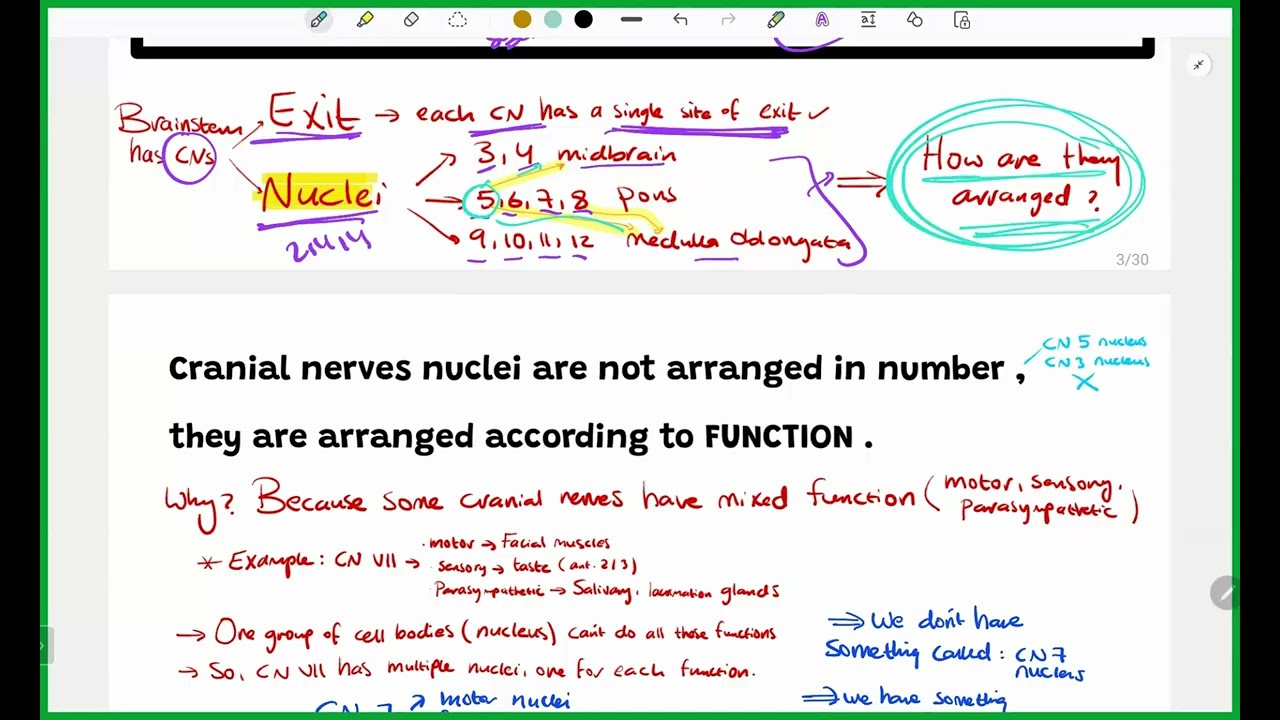 Brainstem has CNs
Exit → each CN has a single site of exit ✓
Nuclei
2,4,4
3, 4 midbrain
5, 6, 7, 8 pons
9, 10, 11, 12 medulla oblongata
How are they arranged?
3/30
Cranial nerves nuclei are not arranged in number ,
CN 5 nucleus
CN 3 nucleus
X
they are arranged according to FUNCTION .
Why? Because some cranial nerves have mixed function (motor, sensory, Parasympathetic)
* Example: CN VII →
· motor → Facial muscles
· Sensory → taste (ant. 2/3)
· Parasympathetic → Salivary, lacrimation glands
→ One group of cell bodies (nucleus) can't do all these functions
→ So, CN VII has multiple nuclei, one for each function.
⇒ We don't have
Something called: CN 7
nucleus
⇒ we have something
CN 7 → motor nuclei